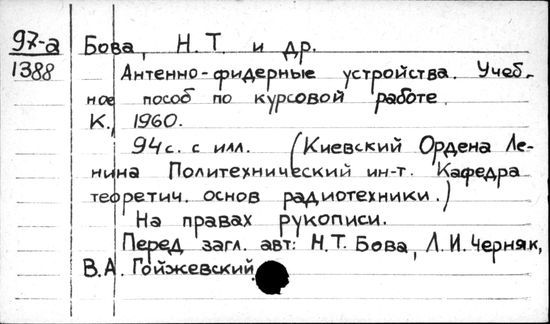 97-а
1388
Бова, Н.Т. и др.
Антенно-фидерные устройства. Учеб-
ное пособ по курсовой работе.
К., 1960.
94с. с илл. (Киевский Ордена Ле-
нина Политехнический ин-т. Кафедра
теоретич. основ радиотехники.)
На правах рукописи.
Перед загл. авт: Н.Т. Бова, Л.И. Черняк,
В.А. Гойжевский